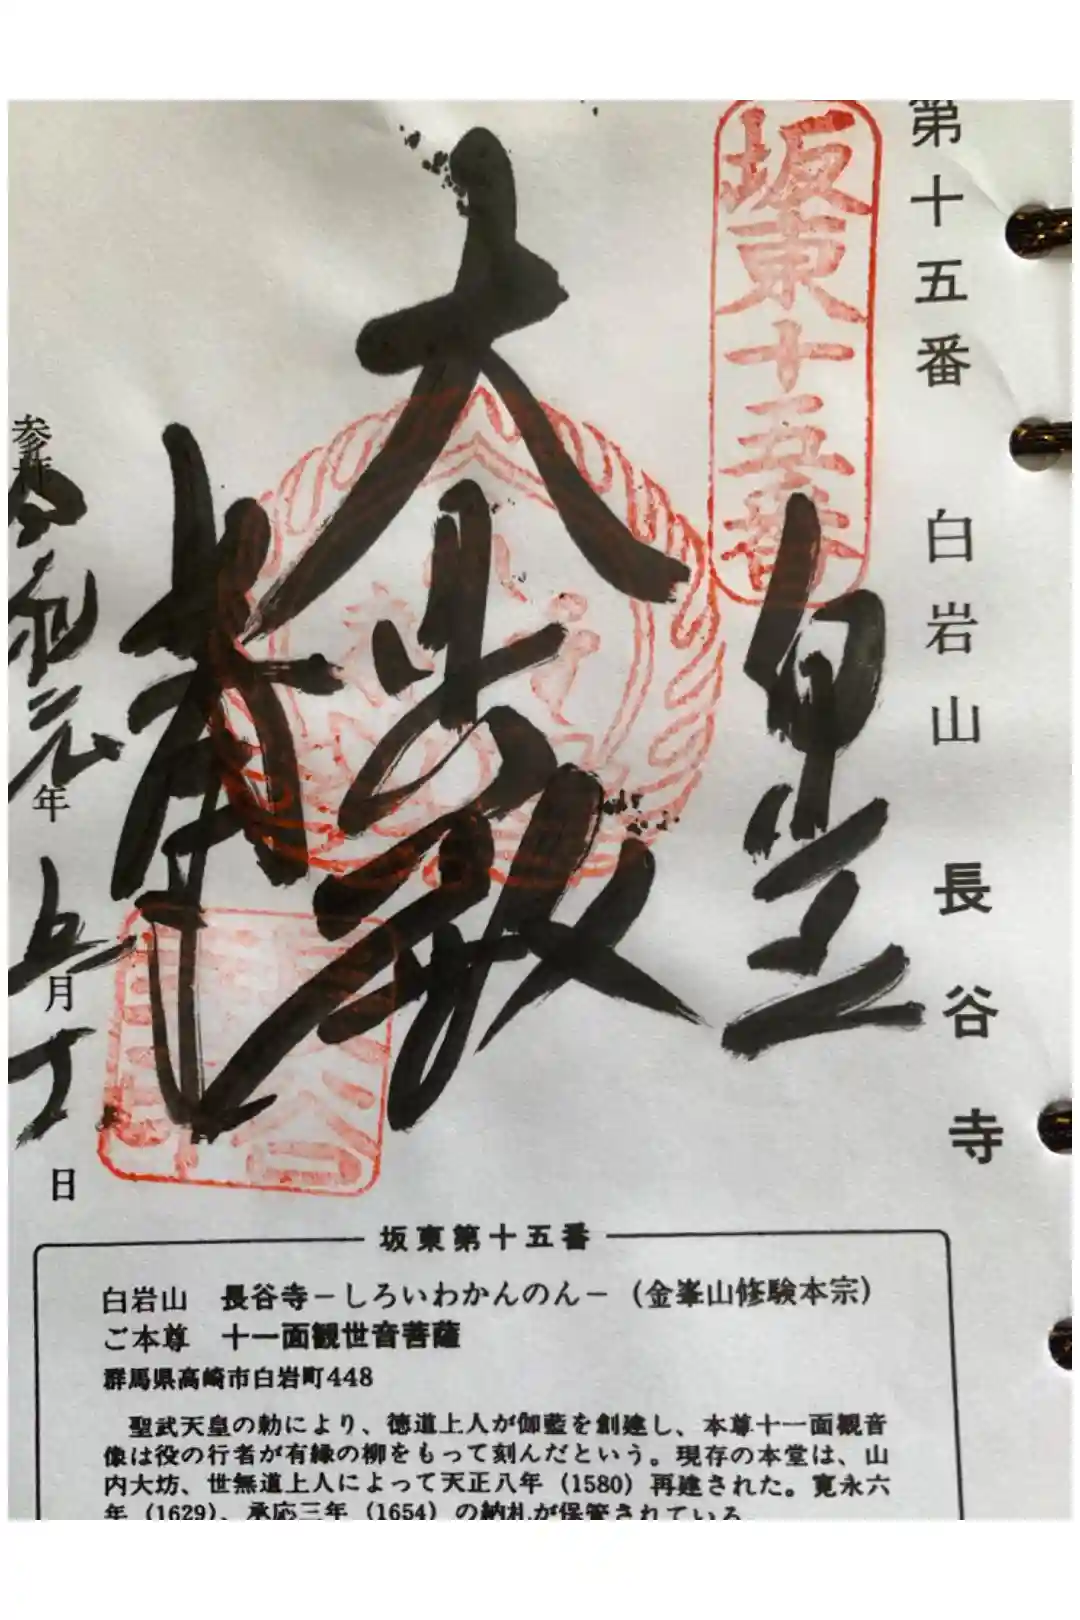 第十五番 白岩山 長谷寺
坂東十五番
大
参拝
令和元年
五月
日
坂東第十五番
白岩山 長谷寺－しろいわかんのん－（金峯山修験本宗）
ご本尊 十一面観世音菩薩
群馬県高崎市白岩町448
聖武天皇の勅により、徳道上人が伽藍を創建し、本尊十一面観音
像は役の行者が有縁の柳をもって刻んだという。現存の本堂は、山
内大坊、世無道上人によって天正八年（1580）再建された。寛永六
年（1629）、承応三年（1654）の納札が保管されている。